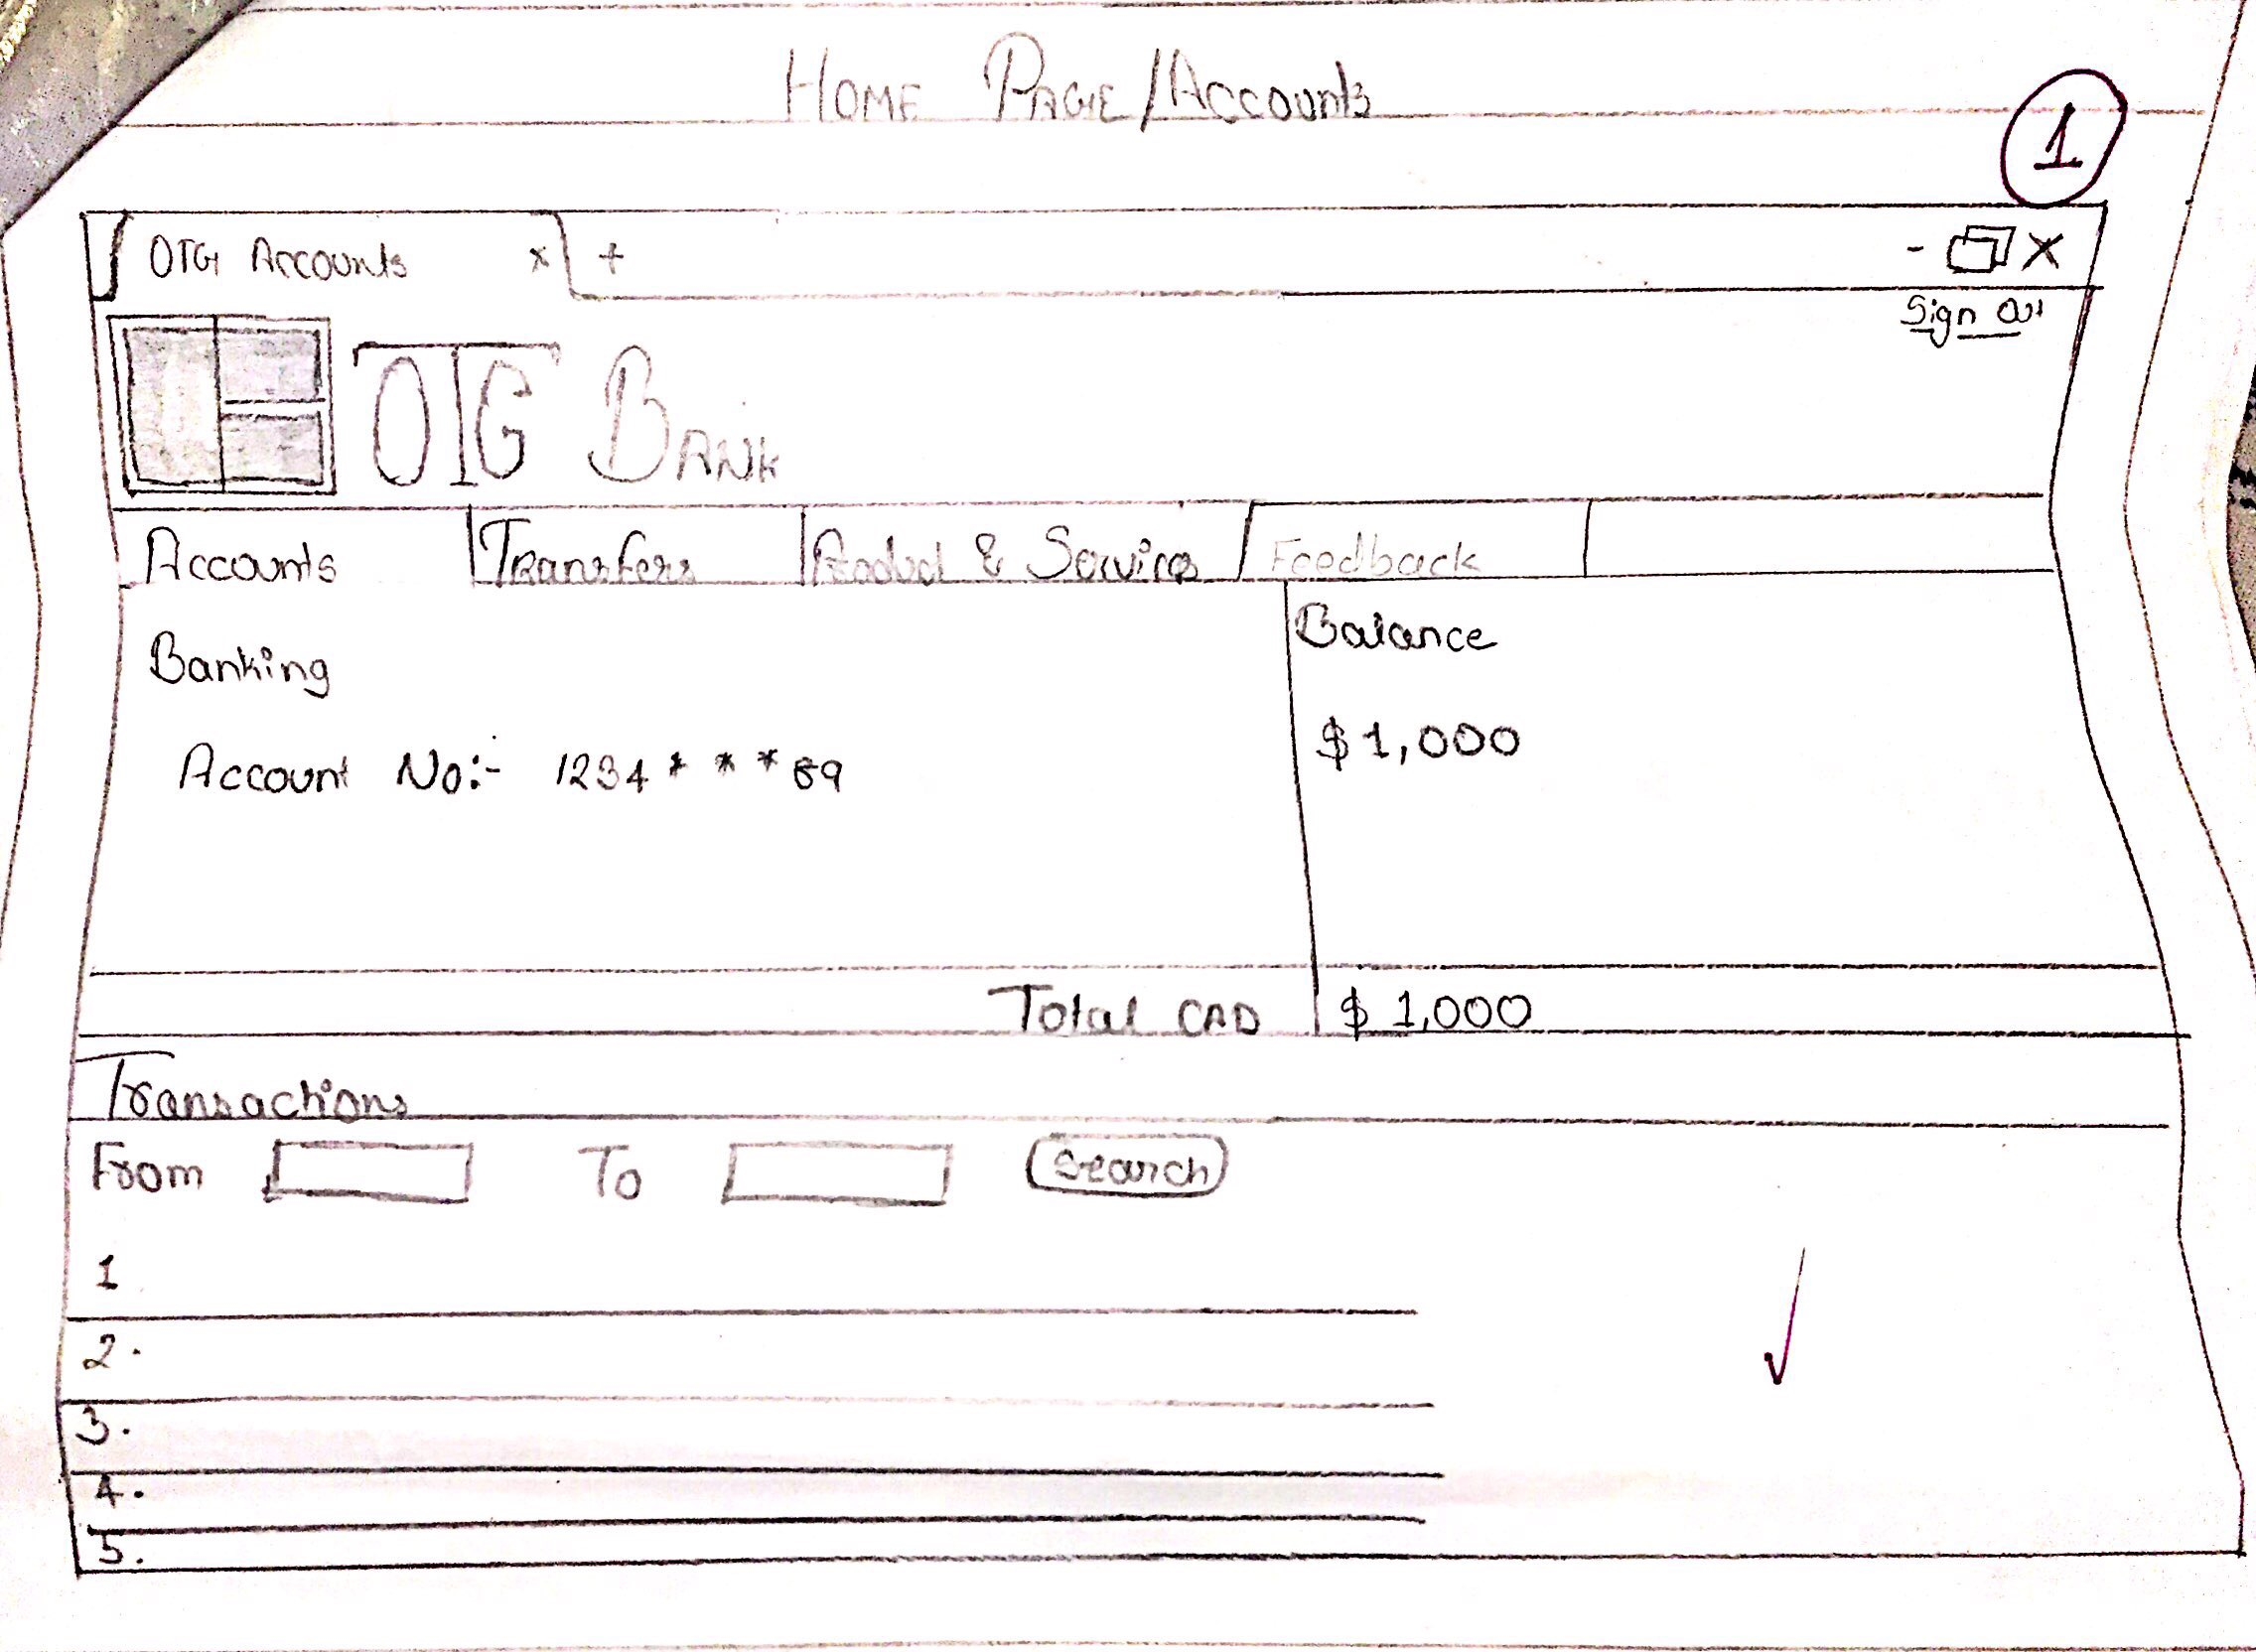 HOME PAGE/Accounts
1
OTG Accounts x +
- X
Sign Out
OTG BANK
Accounts Transfers Product & Services Feedback
Banking Balance
Account No:- 1234***89 $1,000
Total CAD $ 1,000
Transactions
From To Search
1
2.
3.
4.
5.